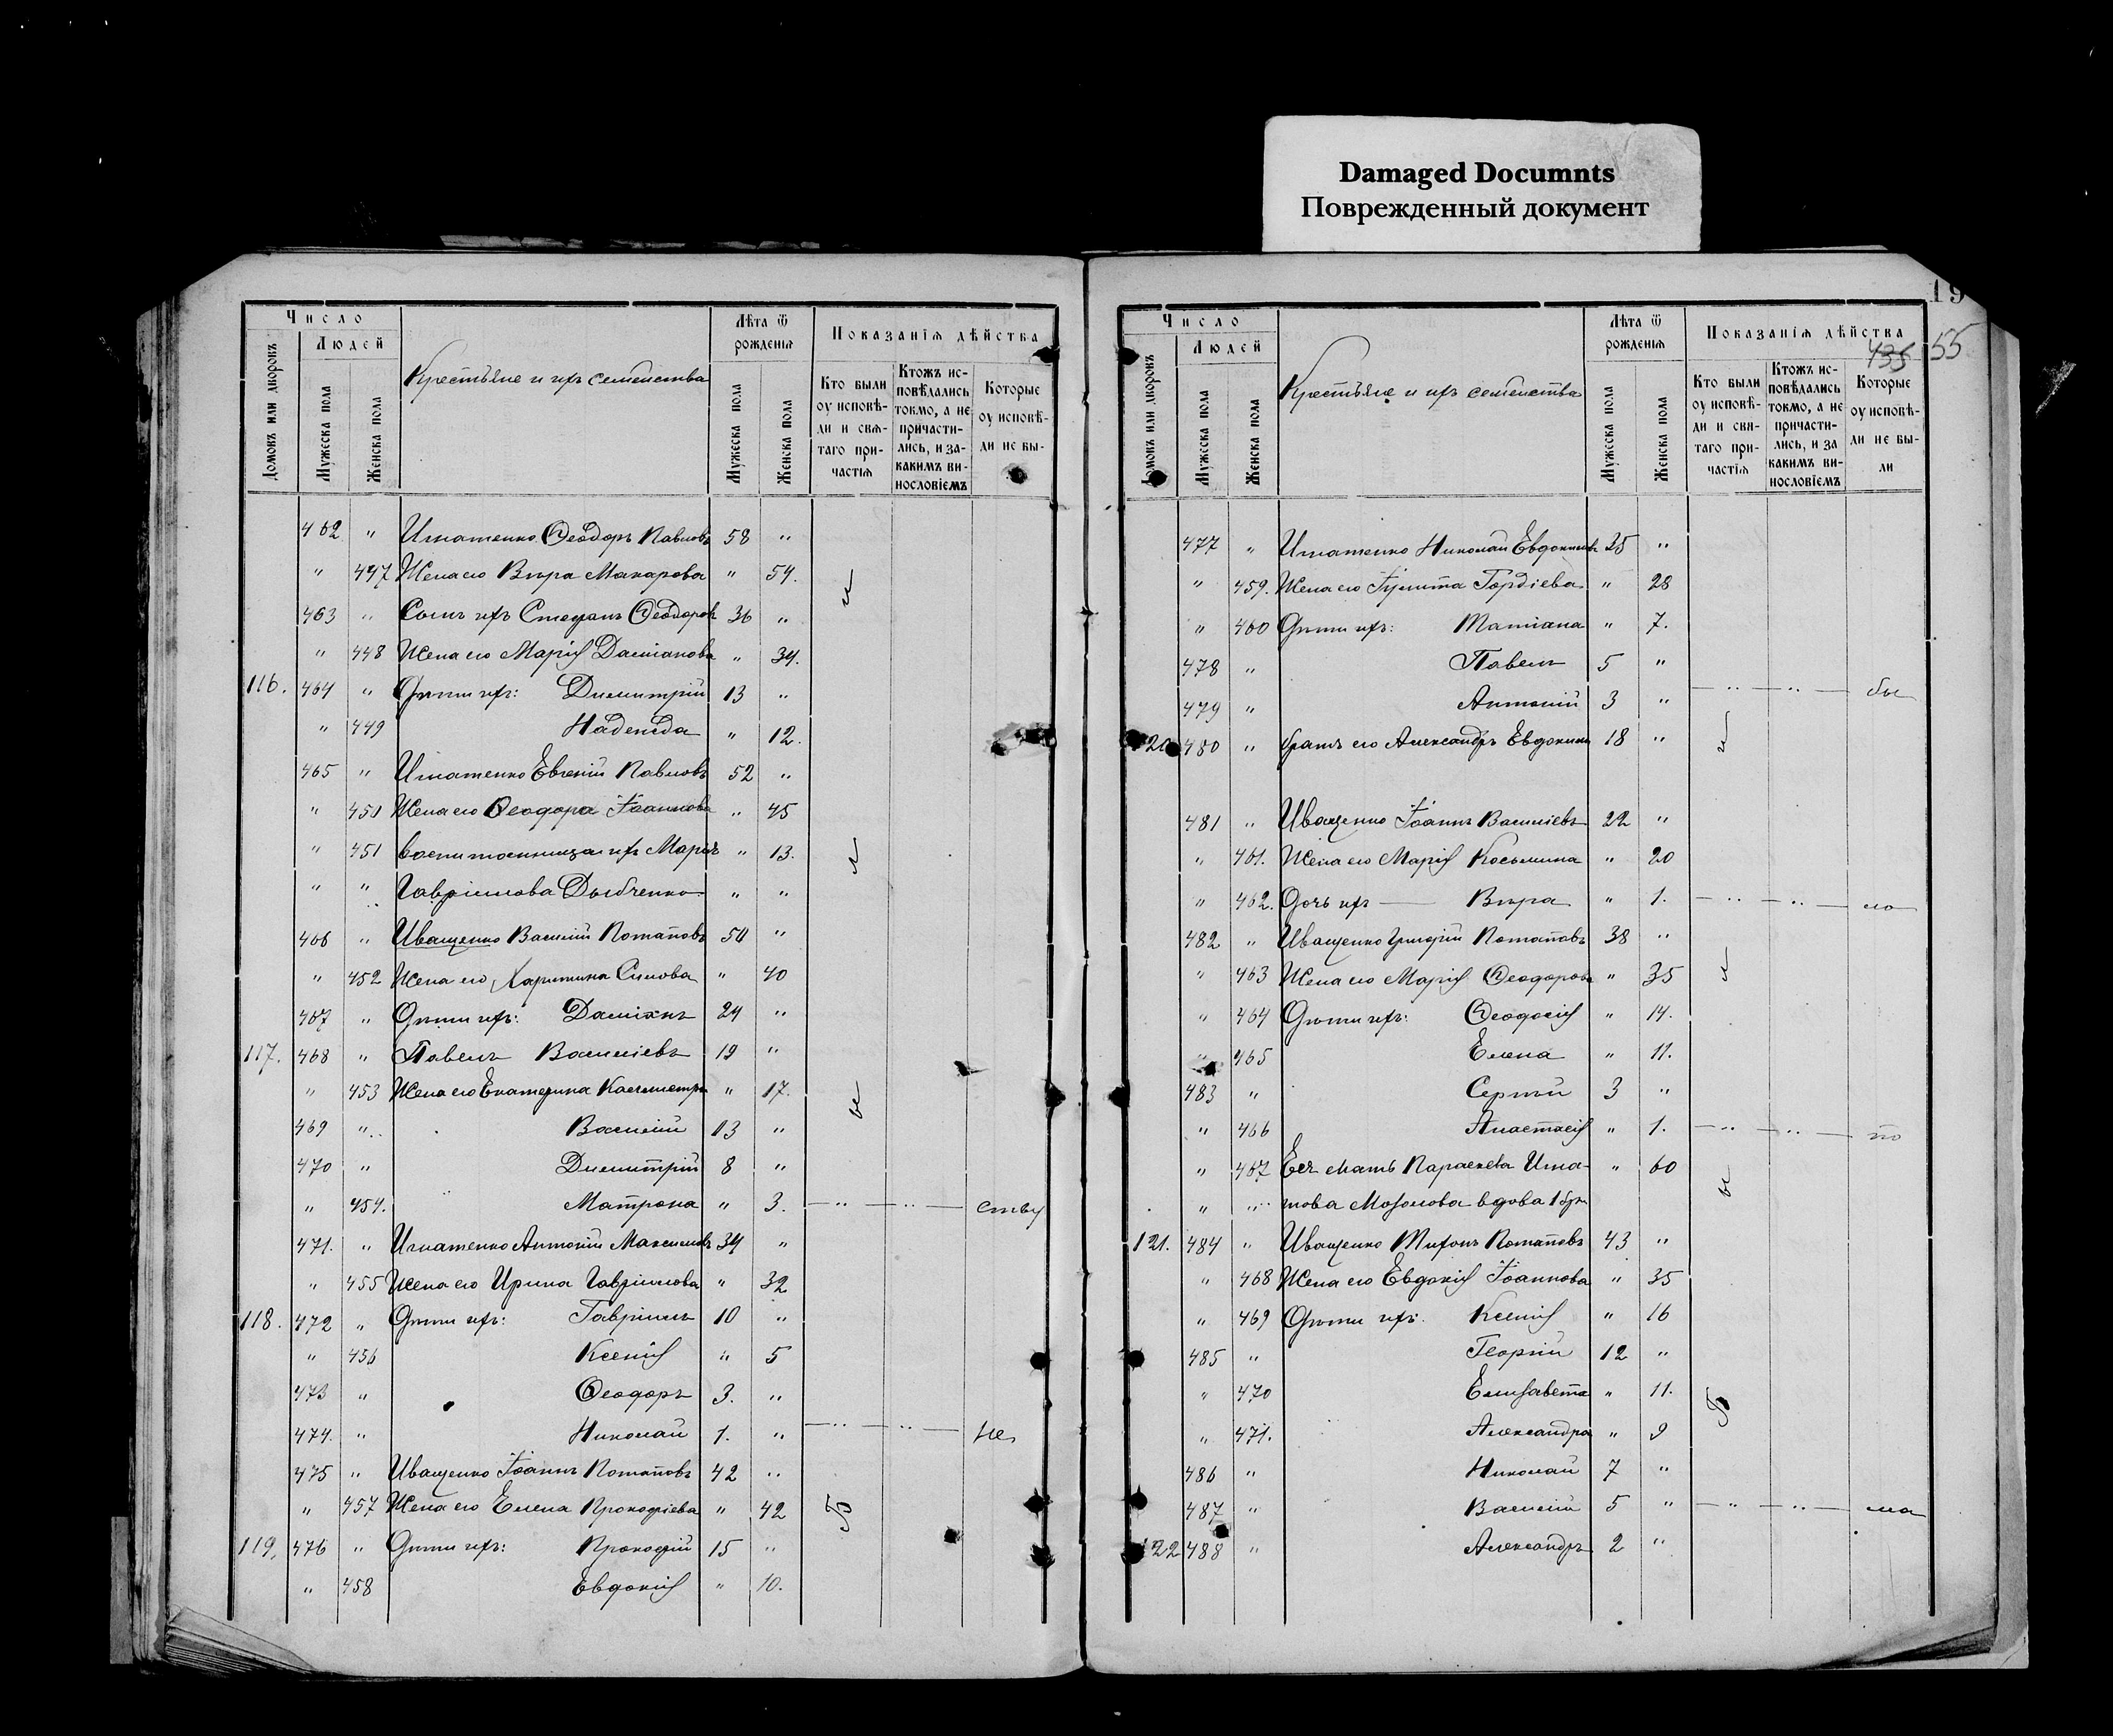 Damaged Documnts
Поврежденный документ
19
435 55
Число
Людей
Домовъ или дворовъ
Мужеска пола
Женска пола
Крестьяне и ихъ семейства
Лѣта ѿ рожденія
Мужеска пола
Женска пола
Показанія дѣйства
Кто были оу исповѣди и свѧтаго причастія
Ктожъ исповѣдались токмо, а не причастились, и за какимъ винословіемъ
Которые оу исповѣди не бы-
462 " Игнатенко Ѳеодоръ Павловъ 58 "
" 447 Жена его Вѣра Макарова " 54.
463 " Сынъ ихъ Стефанъ Ѳеодоровъ 36 "
" 448 Жена его Марія Даміанова " 34.
116. 464 " Дѣти ихъ: Димитрій 13 "
" 449 Надежда " 12.
465 " Игнатенко Евгеній Павловъ 52 "
" 450 Жена его Ѳеодора Іоаннова " 45
" 451 воспитанница ихъ Марія " 13.
" " Гавріилова "  "
466 " Иващенко Василій Потаповъ 50 "
" 452 Жена его Харитина Силова " 40
467 " Дѣти ихъ: Даміанъ 24 "
117. 468 " Павелъ Василіевъ 19 "
" 453 Жена его Екатерина " 17.
469 " Василій 13 "
470 " Димитрій 8 "
" 454. Матрона " 3. — " — " — ству
471. " Игнатенко Антоній Максимовъ 34 "
" 455 Жена его Ирина Гавріилова " 32
118. 472 " Дѣти ихъ: Гавріилъ 10 "
" 456 Ксенія " 5
473 " Ѳеодоръ 3. "
474. " Николай 1. " — " — " — не
475 " Иващенко Іоаннъ Потаповъ 42 "
" 457 Жена его Елена Прокофіева " 42
119. 476 " Дѣти ихъ: Прокофій 15 "
" 458 Евдокія " 10.
Число
Людей
Домовъ или дворовъ
Мужеска пола
Женска пола
Крестьяне и ихъ семейства
Лѣта ѿ рожденія
Мужеска пола
Женска пола
Показанія дѣйства
Кто были оу исповѣди и свѧтаго причастія
Ктожъ исповѣдались токмо, а не причастились, и за какимъ винословіемъ
Которые оу исповѣди не были
477 " Игнатенко Николай Евдокимовъ 25 "
" 459. Жена его Іулитта Гордіева " 28
" 460 Дѣти ихъ: Татіана " 7.
478 " Павелъ 5 "
479 " Антоній 3 " — " — " — бы
120 480 " братъ его Александръ Евдокимовъ 18 "
481 " Иващенко Іоаннъ Василіевъ 22 "
" 461. Жена его Марія Косьмина " 20
" 462. Дочь ихъ — Вѣра " 1. — " — " — ло
482 " Иващенко Григорій Потаповъ 38 "
" 463 Жена его Марія Ѳеодорова " 35
" 464 Дѣти ихъ: Ѳеодосія " 14.
" 465 Елена " 11.
483 " Сергій 3 "
" 466 Анастасія " 1. — " — " — по
" 467 Ея мать Параскева Игна- " 60
" " това вдова 1 бр.
121. 484 " Иващенко Тихонъ Потаповъ 43 "
" 468 Жена его Евдокія Іоаннова " 35
" 469 Дѣти ихъ: Ксенія " 16
485 " Георгій 12 "
" 470 Елизавета " 11.
" 471. Александра " 9
486 " Николай 7 "
487 " Василій 5 " — " — " — ма
122 488 " Александръ 2 "